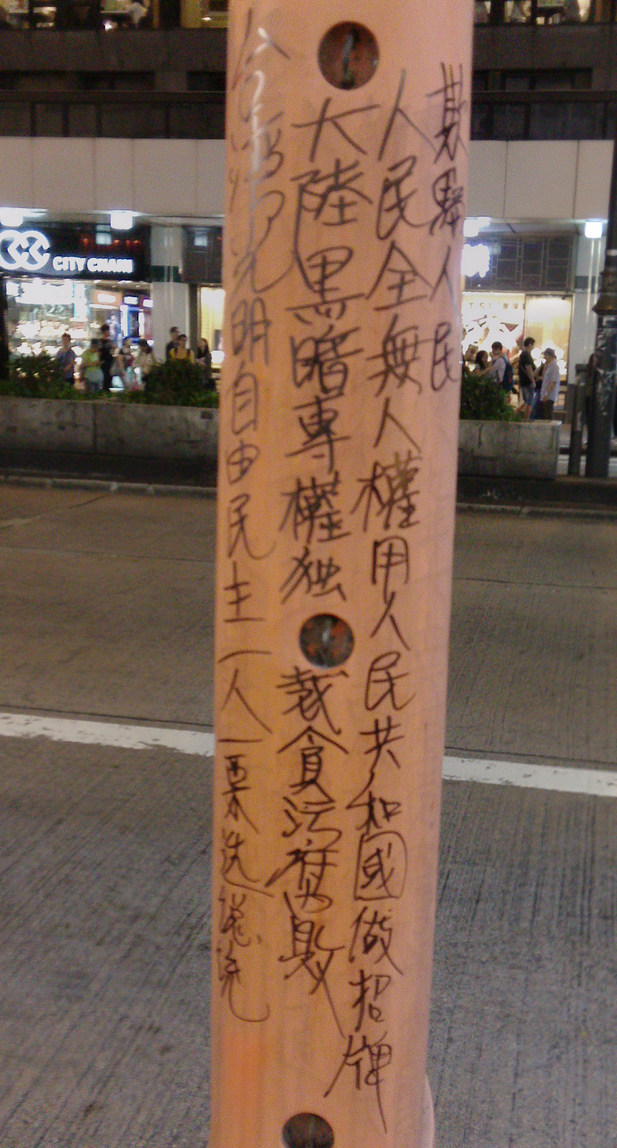 欺騙人民
人民全無人權用人民共和國做招牌
大陸黑暗專權独裁貪污腐敗
台灣光明自由民主一人一票选總統
CITY CHAIN